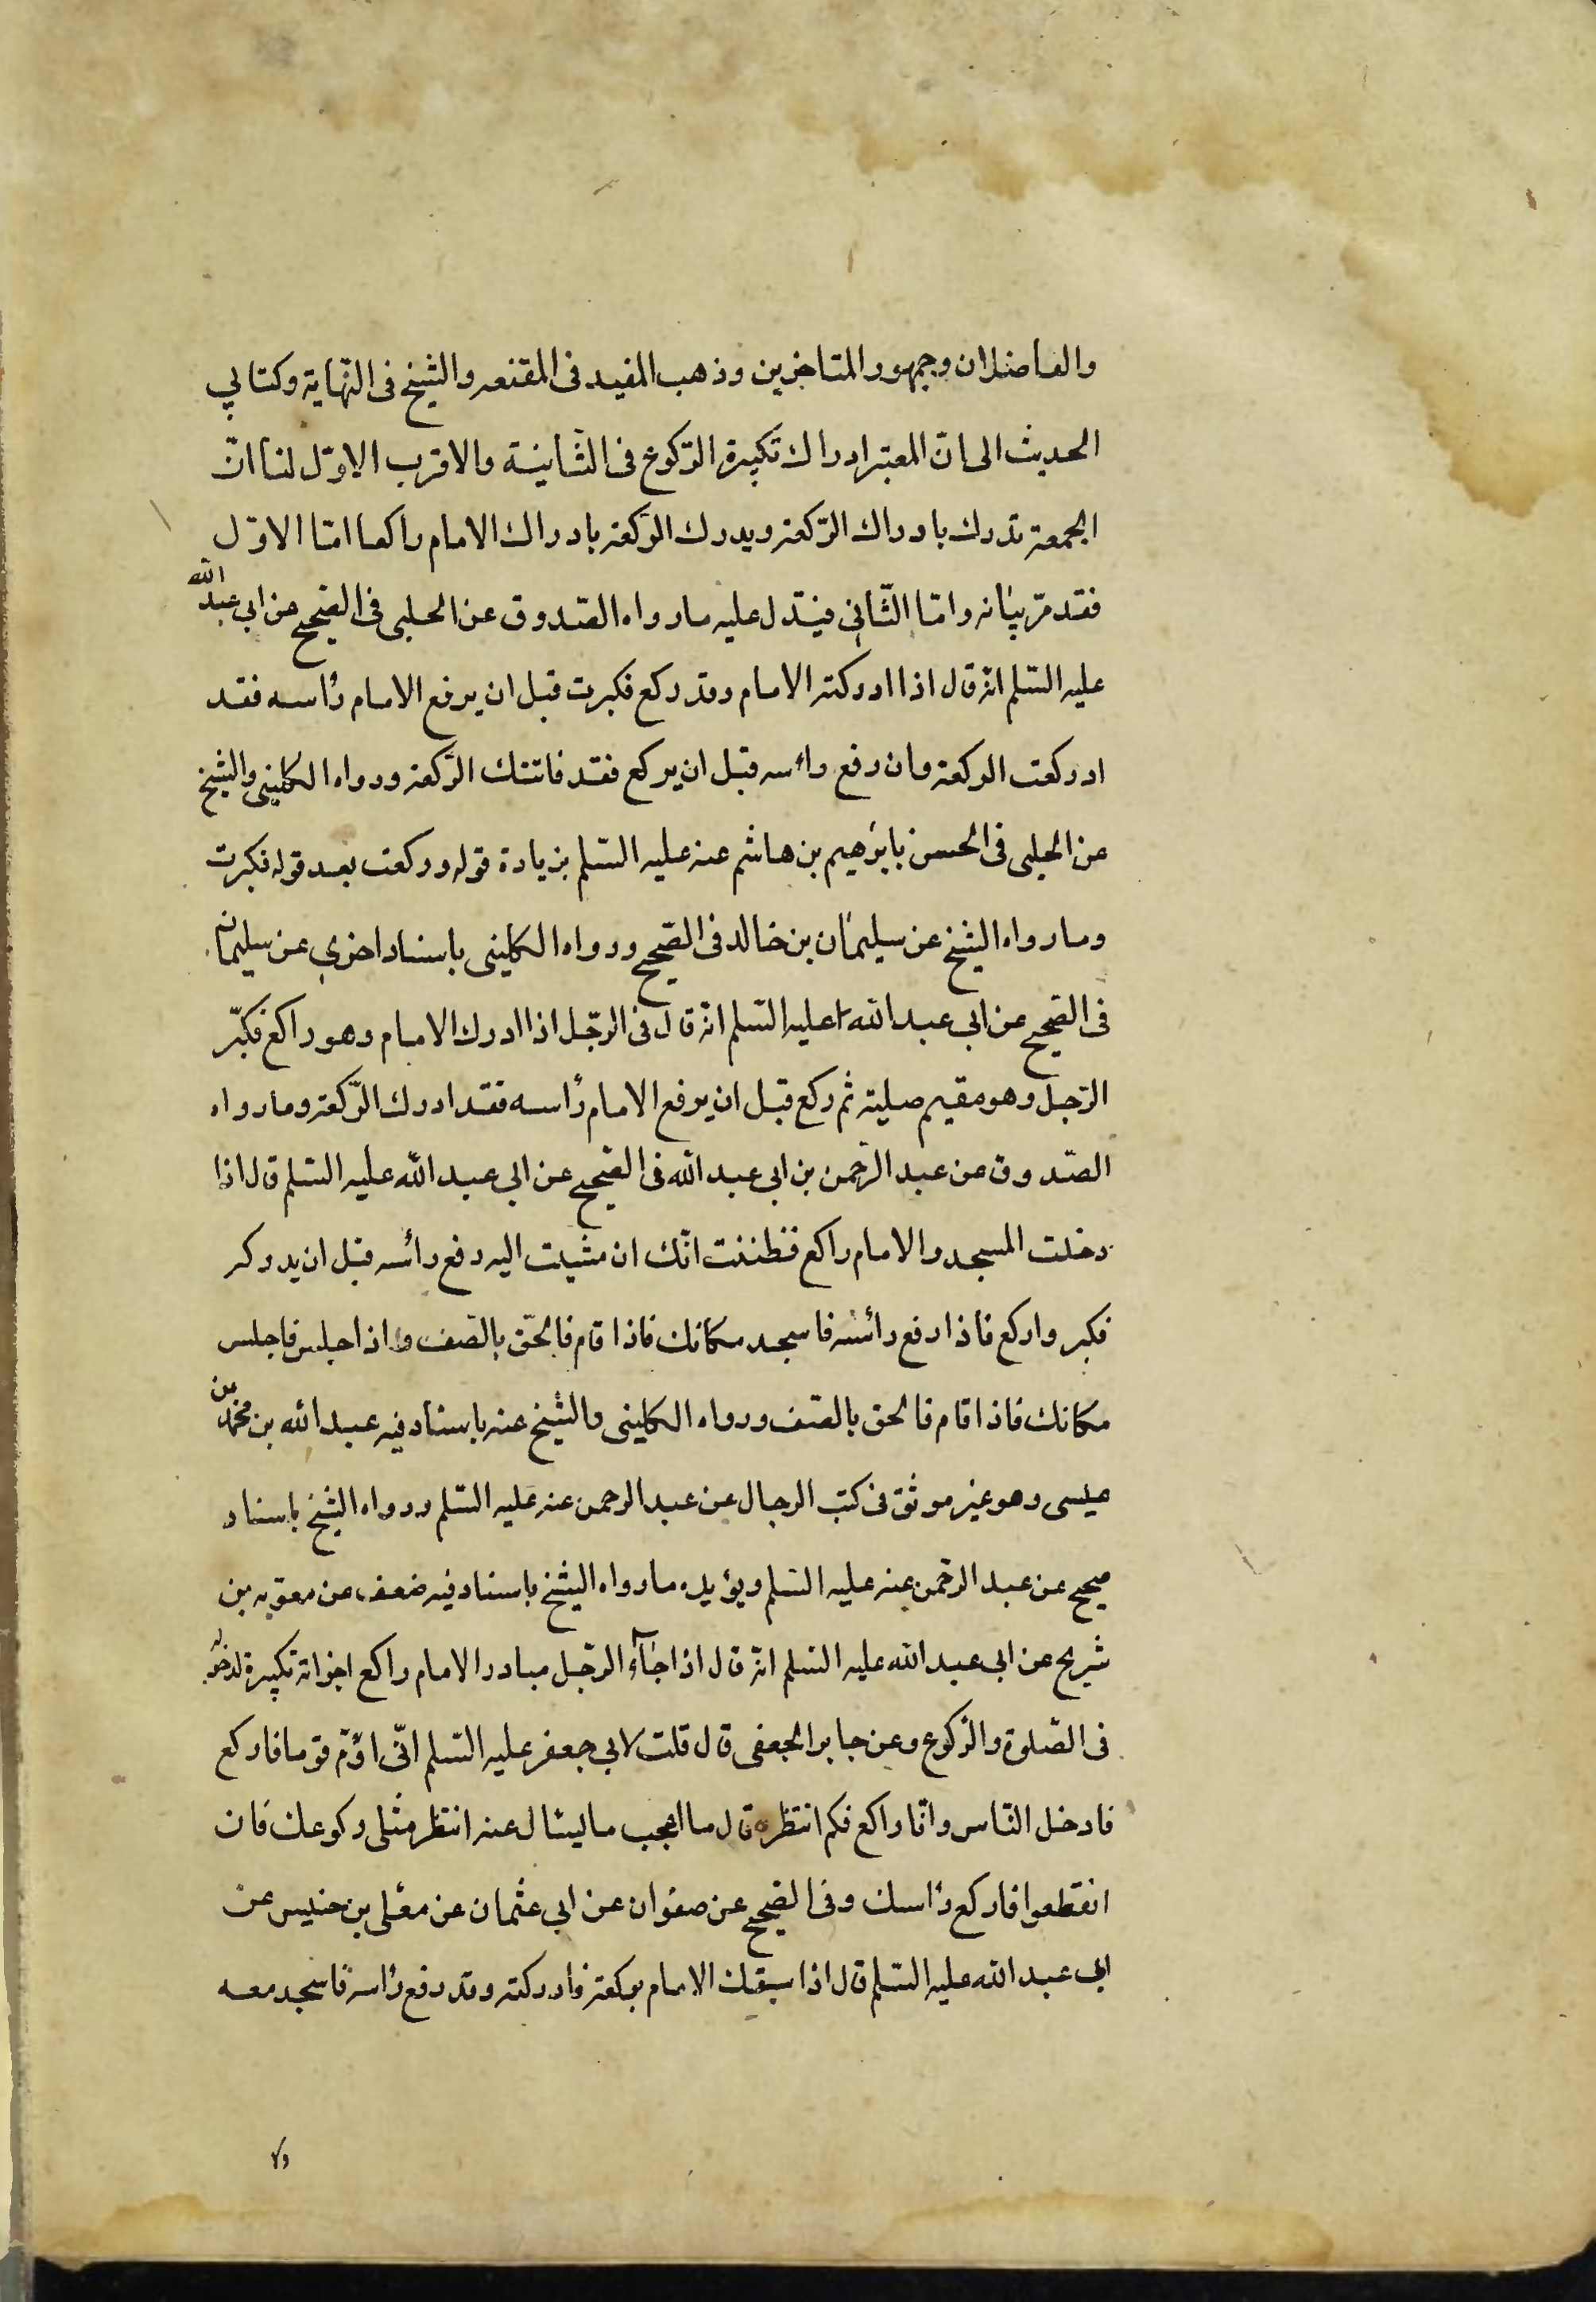 والفاضلان وجمهور المتاخرين وذهب المفيد فى المقنعه والشيخ فى النّهاية وكتابي
الحديث الى انّ المعتبر ادراك تكبيرة الرّكوع فى الثّانية والاقرب الاوّل لنا انّ
الجمعة تدرك بادراك الرّكعة ويدرك الرّكعة بادراك الامام راكعا امّا الاوّل
فقد مرّ بيانه وامّا الثّانى فيدّل عليه مارواه الصّدوق عن الحلبى فى الصّحيح عن ابي عبد الله
عليه السّلم انّه قال اذا ادركته الامام وقد ركع فكبرت قبل ان يرفع الامام رأسه فقد
ادركعت الركعة وان رفع رأسه قبل ان يركع فقد فاتتك الرّكعة ورواه الكلينى والشيخ
عن الحلبى فى الحسن بابرٰهيم بن هاشم عنه عليه السّلم بزيادة قوله وركعت بعد قوله فكبرت
ومارواه الشيخ عن سليمٰان بن خالد فى الصّحيح ورواه الكلينى باسناد اخرى عن سليمان
فى الصّحيح عن ابي عبد الله عليه السّلم انّه قال فى الرّجل اذا ادرك الامام وهو راكع فكبّر
الرّجل وهو مقيم صلبه ثم ركع قبل ان يرفع الامام رأسه فقد ادرك الرّكعة ومارواه
الصّدوق عن عبد الرّحمن بن ابي عبد الله فى الصّحيح عن ابي عبد الله عليه السّلم قال اذا
دخلت المسجد والامام راكع فظننت انّك ان مشيت اليه رفع رأسه قبل ان يدركر
فكبر واركع فاذا رفع رأسه فاسجد مكانك فاذا قام فالحق بالصّف واذا جلس فاجلس
مكانك فاذا قام فالحق بالصّف ورواه الكلينى والشيخ عنه باسناد فيه عبد الله بن محمّد بن
عيسى وهو غير موثق فى كتب الرجال عن عبد الرحمن عنه عليه السّلم ورواه الشيخ باسناد
صحيح عن عبد الرّحمن عنه عليه السّلم ويؤيده مارواه الشيخ باسناد فيه ضعف عن معوّيه بن
شريح عن ابى عبد الله عليه السّلم انّه قال اذا جآء الرّجل مبادر الامام راكع اجزاته تكبيرة لدخوله
فى الصّلوة والرّكوع وعن جابر الجعفى قال قلت لابي جعفر عليه السّلم انّى اؤمّ قوما فاركع
فادخل النّاس وانّا راكع فكم انتظره قال ما اعجب ما ليشال عنه انتظر مثلى ركوعك فان
انقطعوا فاركع رأسك وفى الصّحيح عن صفوان عن ابي عثمان عن معلّى بن خنيس عن
ابى عبد الله عليه السّلم قال اذا سبقك الامام بركعة فادركته وقد رفع رأسه فاسجد معه
ولا